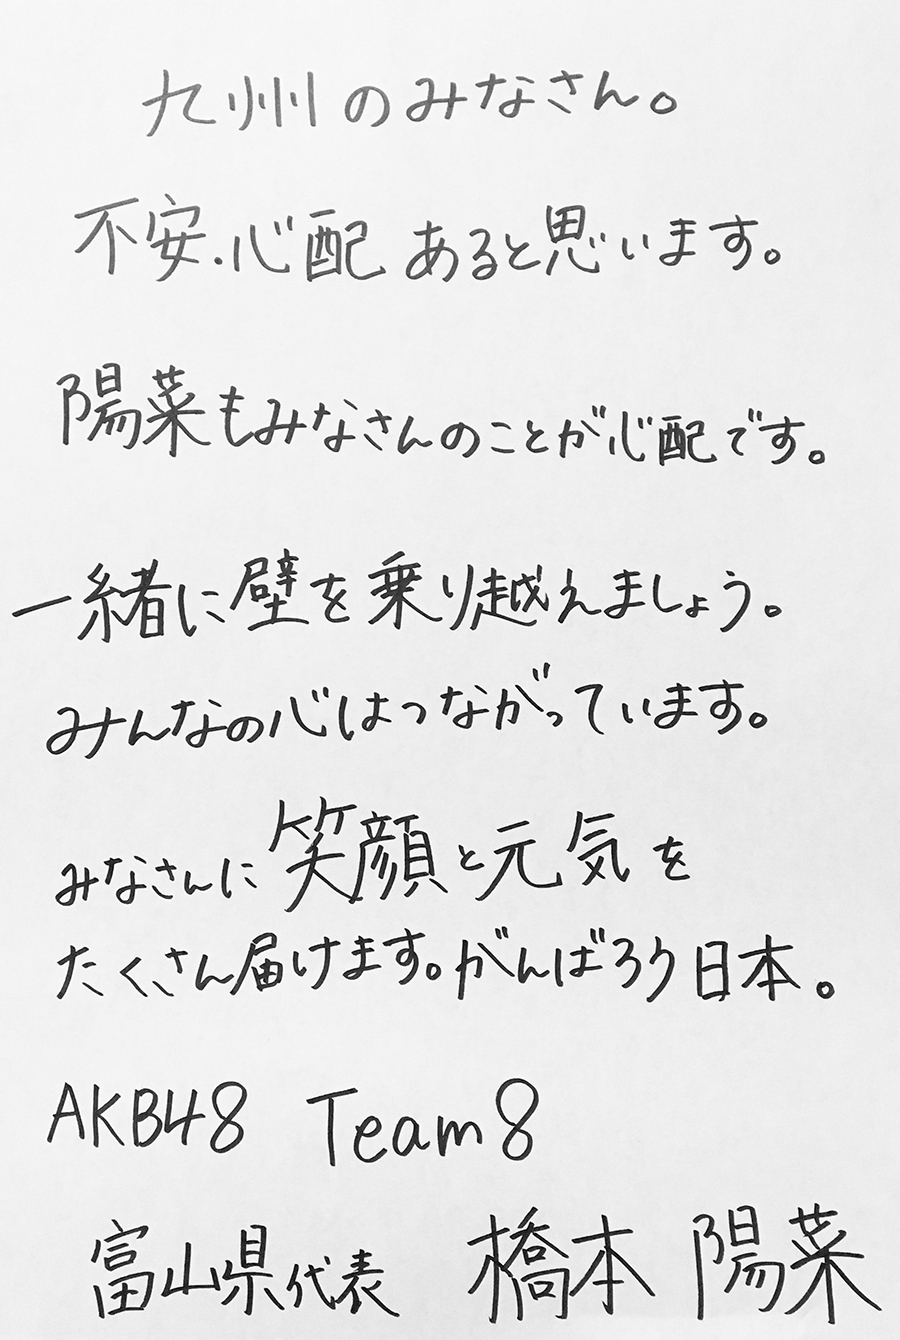 九州のみなさん。
不安・心配 あると思います。
陽菜もみなさんのことが心配です。
一緒に壁を乗り越えましょう。
みんなの心はつながっています。
みなさんに笑顔と元気を
たくさん届けます。がんばろう日本。
AKB48 Team8
富山県代表 橋本 陽菜